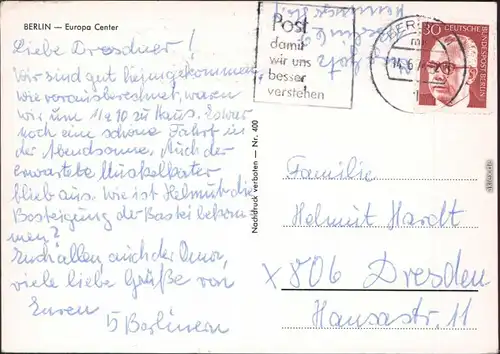 BERLIN — Europa Center
Liebe Dresdner!
Wir sind gut heimgekommen,
wie vorausberechnet, waren
wir um 11 10 zu Haus. Es war
noch eine schöne Fahrt in
der Abendsonne. Auch der
erwartete Muskelkater
blieb aus. Wie ist Helmut die
Besteigung der Bastei bekom-
men?
Euch allen, auch der Oma,
viele liebe Grüße von
Euren
5 Berlinern
Nachdruck verboten — Nr. 400
Post
damit
wir uns
besser
verstehen
BERLIN
30
DEUTSCHE
BUNDESPOST BERLIN
Familie
Helmut Hardt
X 806 Dresden
Hansastr. 11